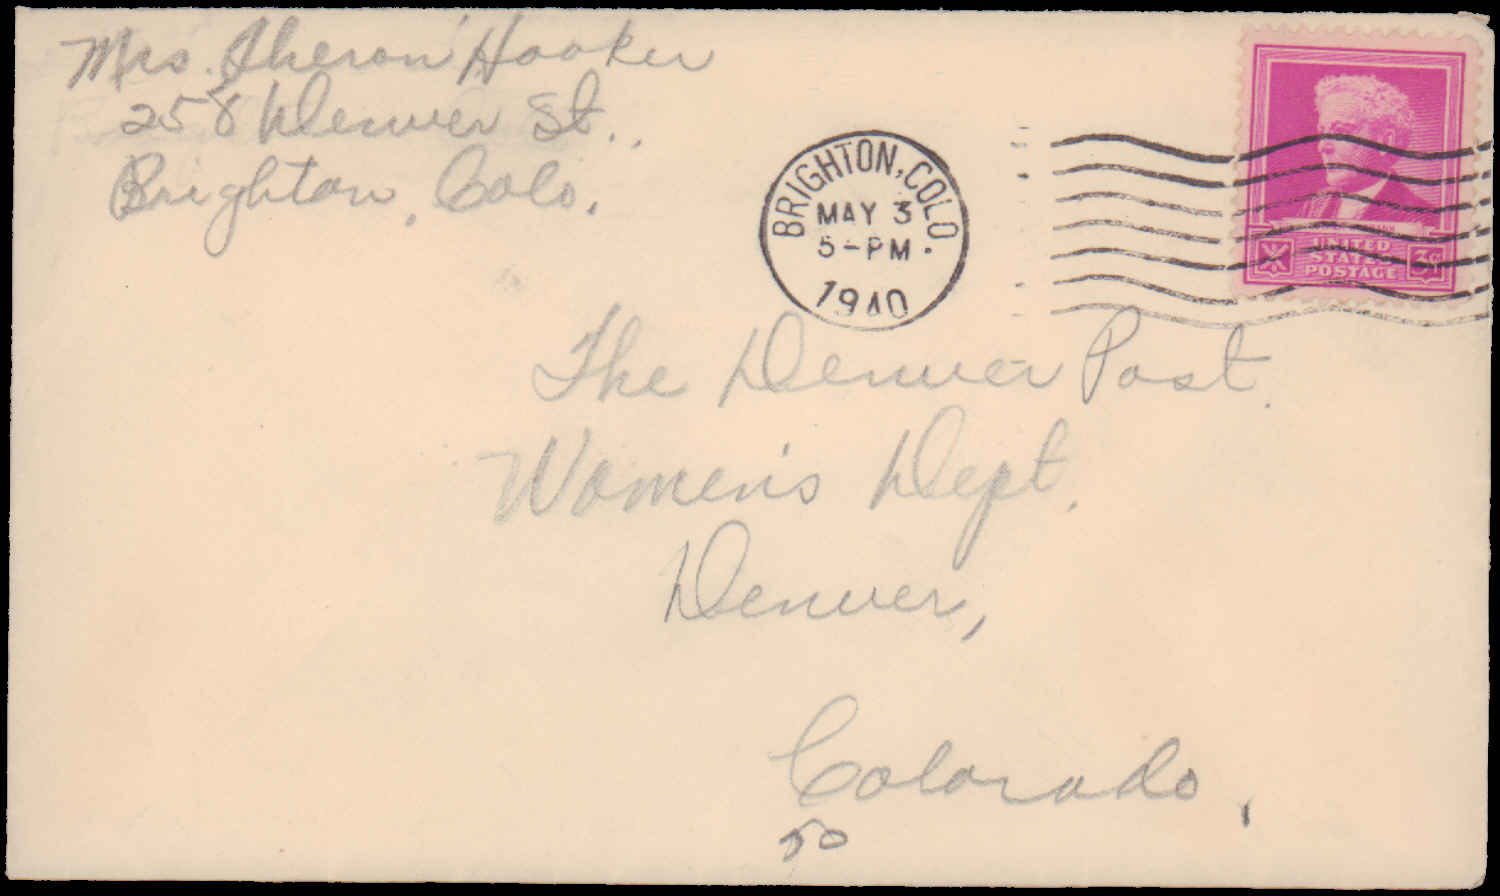 Mrs. Theron Hooker
258 Denver St.
Brighton, Colo.
BRIGHTON, COLO.
MAY 3
5-PM
1940
UNITED
STATES
POSTAGE
3¢
The Denver Post
Women's Dept.
Denver,
Colorado.
50